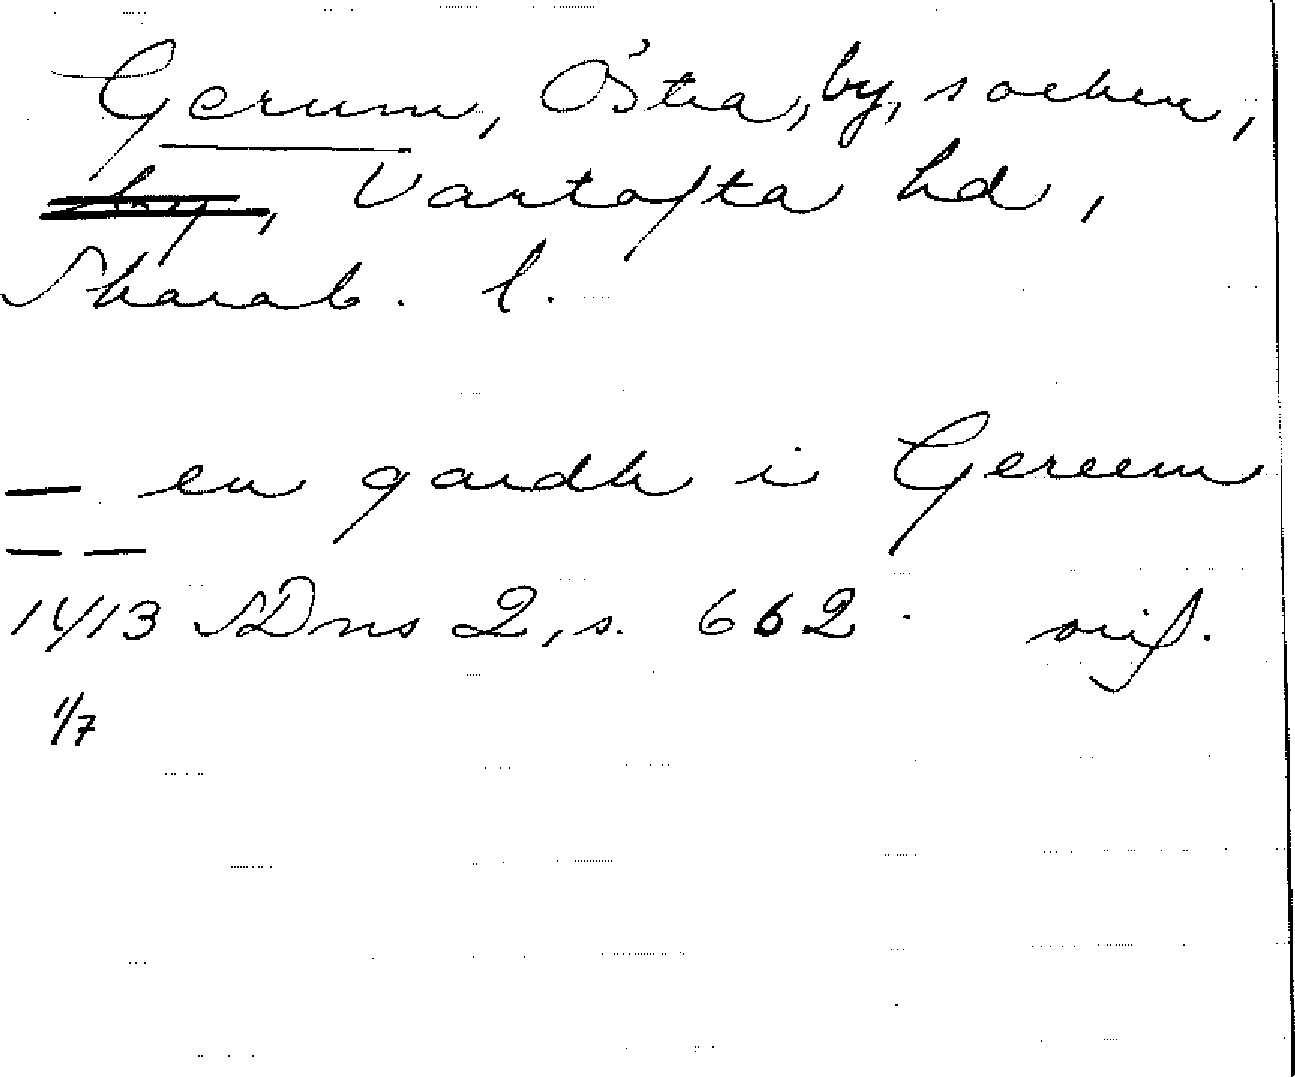 Gerum, Östra, by, socken,
Vartofta hd,
Skarab. l.
— en gardh i Gereem
— —
1413 SDns 2, s. 662. orig.
1/7